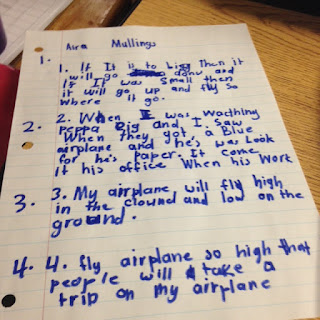 Aira Mullings
1.
1. If It is to big Then it
will go down and
if It was Small then
it will go up and fly so
where it go.
2. 2. When I was wacthing
Peppa Pig and I Saw
When they got a Blue
airplane and he's was Look
for he's paper. It come
It his office When his Work
3. 3. My airplane will fly high
in the clound and low on the
ground.
4. 4. fly airplane so high that
people will take a
trip on my airplane